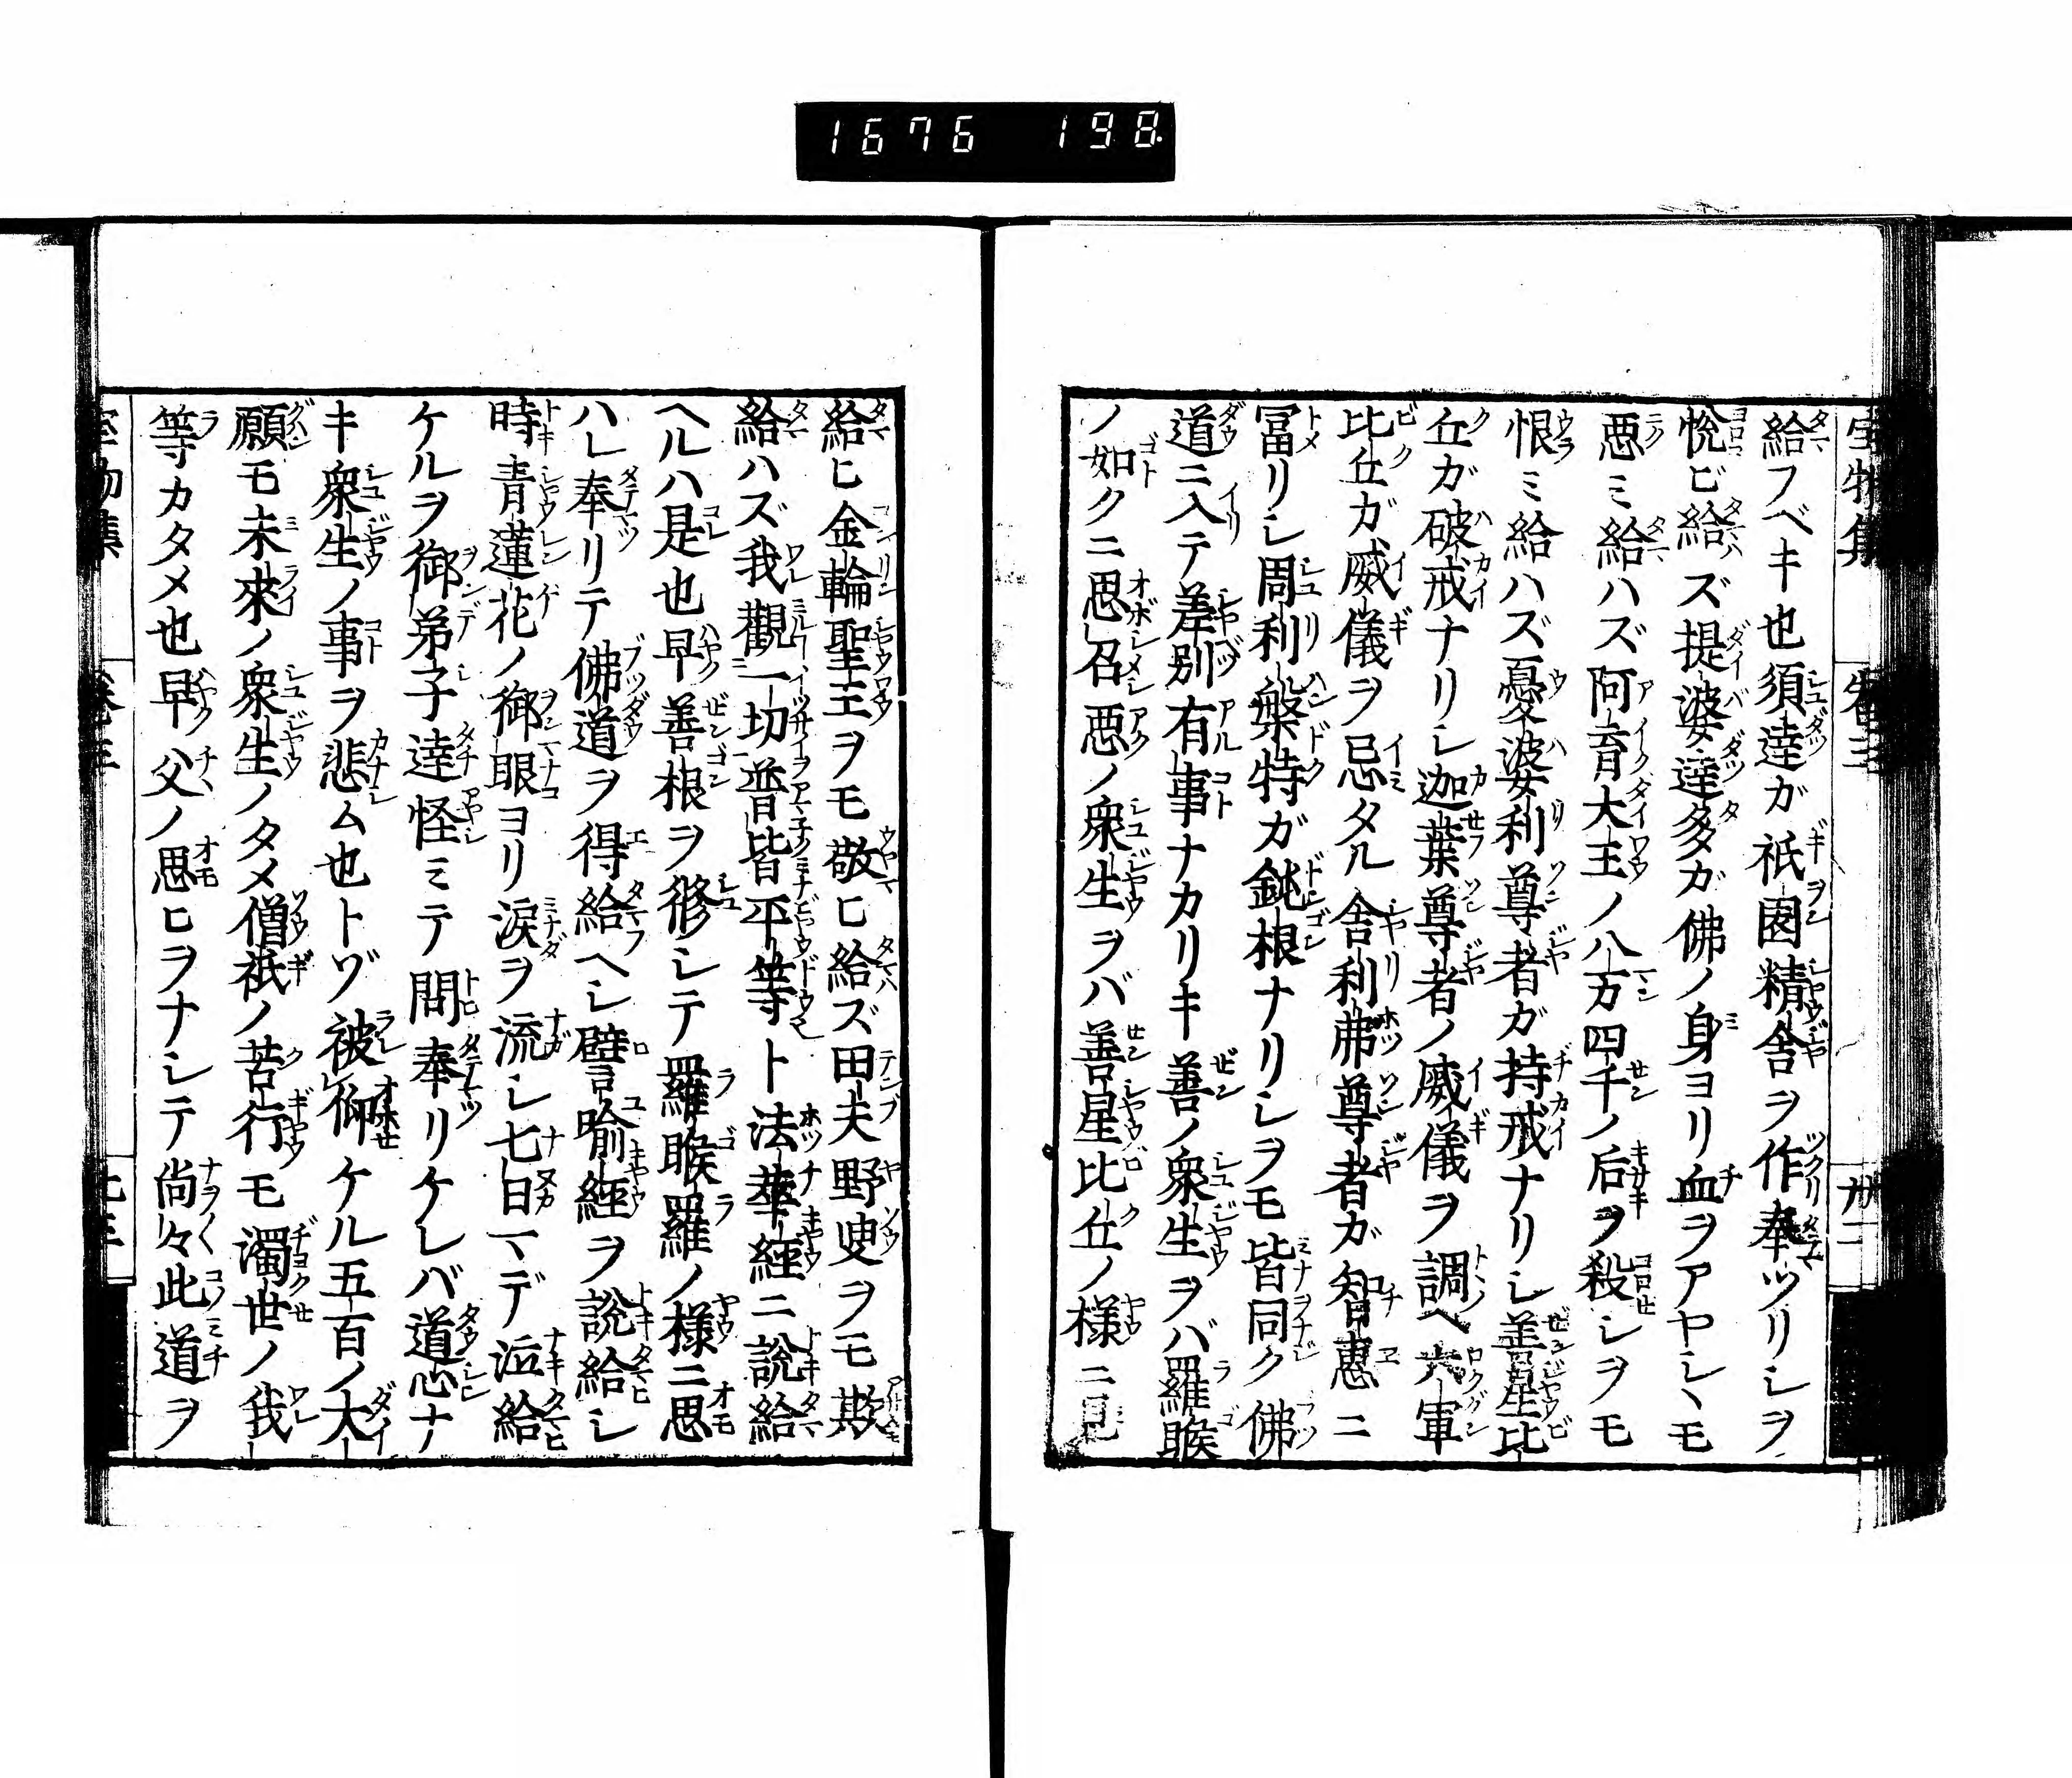 1676 198
給フベキ也須達ガ祇園精舎ヲ作奉ツリシヲ
悦ビ給ズ提婆達多ガ佛ノ身ヨリ血ヲアヤシヽモ
悪ミ給ハズ阿育大王ノ八万四千ノ后ヲ殺シヲモ
恨ミ給ハズ憂婆利尊者ガ持戒ナリシ善星比
丘ガ破戒ナリシ迦葉尊者ノ威儀ヲ調ヘ六軍
比丘ガ威儀ヲ忌タル舎利弗尊者ガ智恵ニ
冨リシ周利槃特ガ鈍根ナリシヲモ皆同ク佛
道ニ入テ差別有事ナカリキ善ノ衆生ヲバ羅睺
ノ如クニ思召悪ノ衆生ヲバ善星比丘ノ様ニ
給ヒ金輪聖王ヲモ敬ヒ給ズ田夫野叟ヲモ欺
給ハズ我觀一切普皆平等ト法華經ニ説給
ヘルハ是也早善根ヲ修シテ羅睺羅ノ様ニ思
ハレ奉リテ佛道ヲ得給ヘシ譬喩經ヲ説給シ
時青蓮花ノ御眼ヨリ涙ヲ流シ七日マデ泣給
ケルヲ御弟子達怪ミテ問奉リケレバ道心ナ
キ衆生ノ事ヲ悲ム也トゾ被仰ケル五百ノ大
願モ未來ノ衆生ノタメ僧祇ノ苦行モ濁世ノ我
等カタメ也早父ノ思ヒヲナシテ尚々此道ヲ